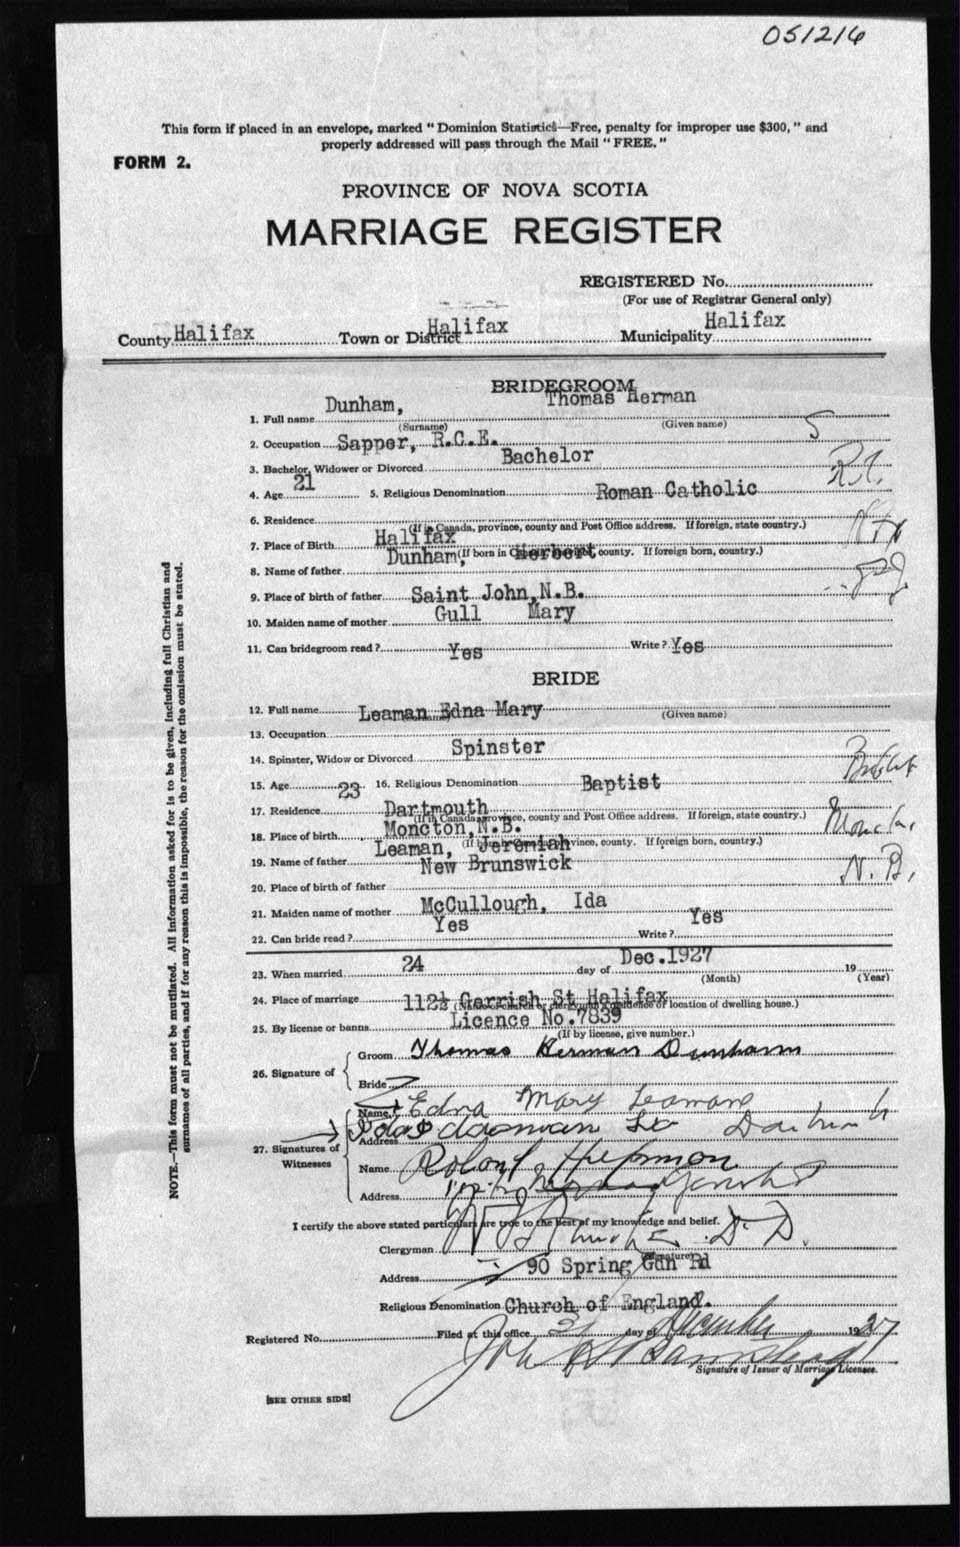 051216
This form if placed in an envelope, marked "Dominion Statistics—Free, penalty for improper use $300," and
properly addressed will pass through the Mail "FREE."
FORM 2.
PROVINCE OF NOVA SCOTIA
MARRIAGE REGISTER
REGISTERED No.
(For use of Registrar General only)
County Halifax Town or District Halifax Municipality Halifax
BRIDEGROOM
1. Full name Dunham, Thomas Herman
(Surname) (Given name)
2. Occupation Sapper, R.C.E. S
3. Bachelor, Widower or Divorced Bachelor
4. Age 21 5. Religious Denomination Roman Catholic
6. Residence
(If in Canada, province, county and Post Office address. If foreign, state country.)
7. Place of Birth Halifax
(If born in county. If foreign born, country.)
8. Name of father Dunham, Herbert
9. Place of birth of father Saint John, N.B.
10. Maiden name of mother Gull Mary
11. Can bridegroom read? Yes Write? Yes
BRIDE
12. Full name Leaman Edna Mary
(Given name)
13. Occupation
14. Spinster, Widow or Divorced Spinster
15. Age 23 16. Religious Denomination Baptist
17. Residence Dartmouth
(If in Canada province, county and Post Office address. If foreign, state country.)
18. Place of birth Moncton, N.B.
(If born in province, county. If foreign born, country.)
19. Name of father Leaman, Jeremiah
N.B.
20. Place of birth of father New Brunswick
21. Maiden name of mother McCullough, Ida
22. Can bride read? Yes Write? Yes
23. When married 24 day of Dec. 1927 19
(Month) (Year)
24. Place of marriage 112½ Gerrish St Halifax
location of dwelling house.)
25. By license or banns Licence No. 7839
(If by license, give number.)
26. Signature of
Groom Thomas Herman Dunham
Bride Edna Mary Leaman
27. Signatures of
Witnesses
Name
Address
Name Roland
Address
I certify the above stated particulars are true to the best of my knowledge and belief.
Clergyman D.D.
(Signature)
Address 90 Spring Gdn Rd
Religious Denomination Church of England.
Registered No. Filed at this office 31 day of December 1927
Signature of Issuer of Marriage Licenses.
[SEE OTHER SIDE]
NOTE.—This form must not be mutilated. All information asked for is to be given, including full Christian and
surnames of all parties, and if for any reason this is impossible, the reason for the omission must be stated.